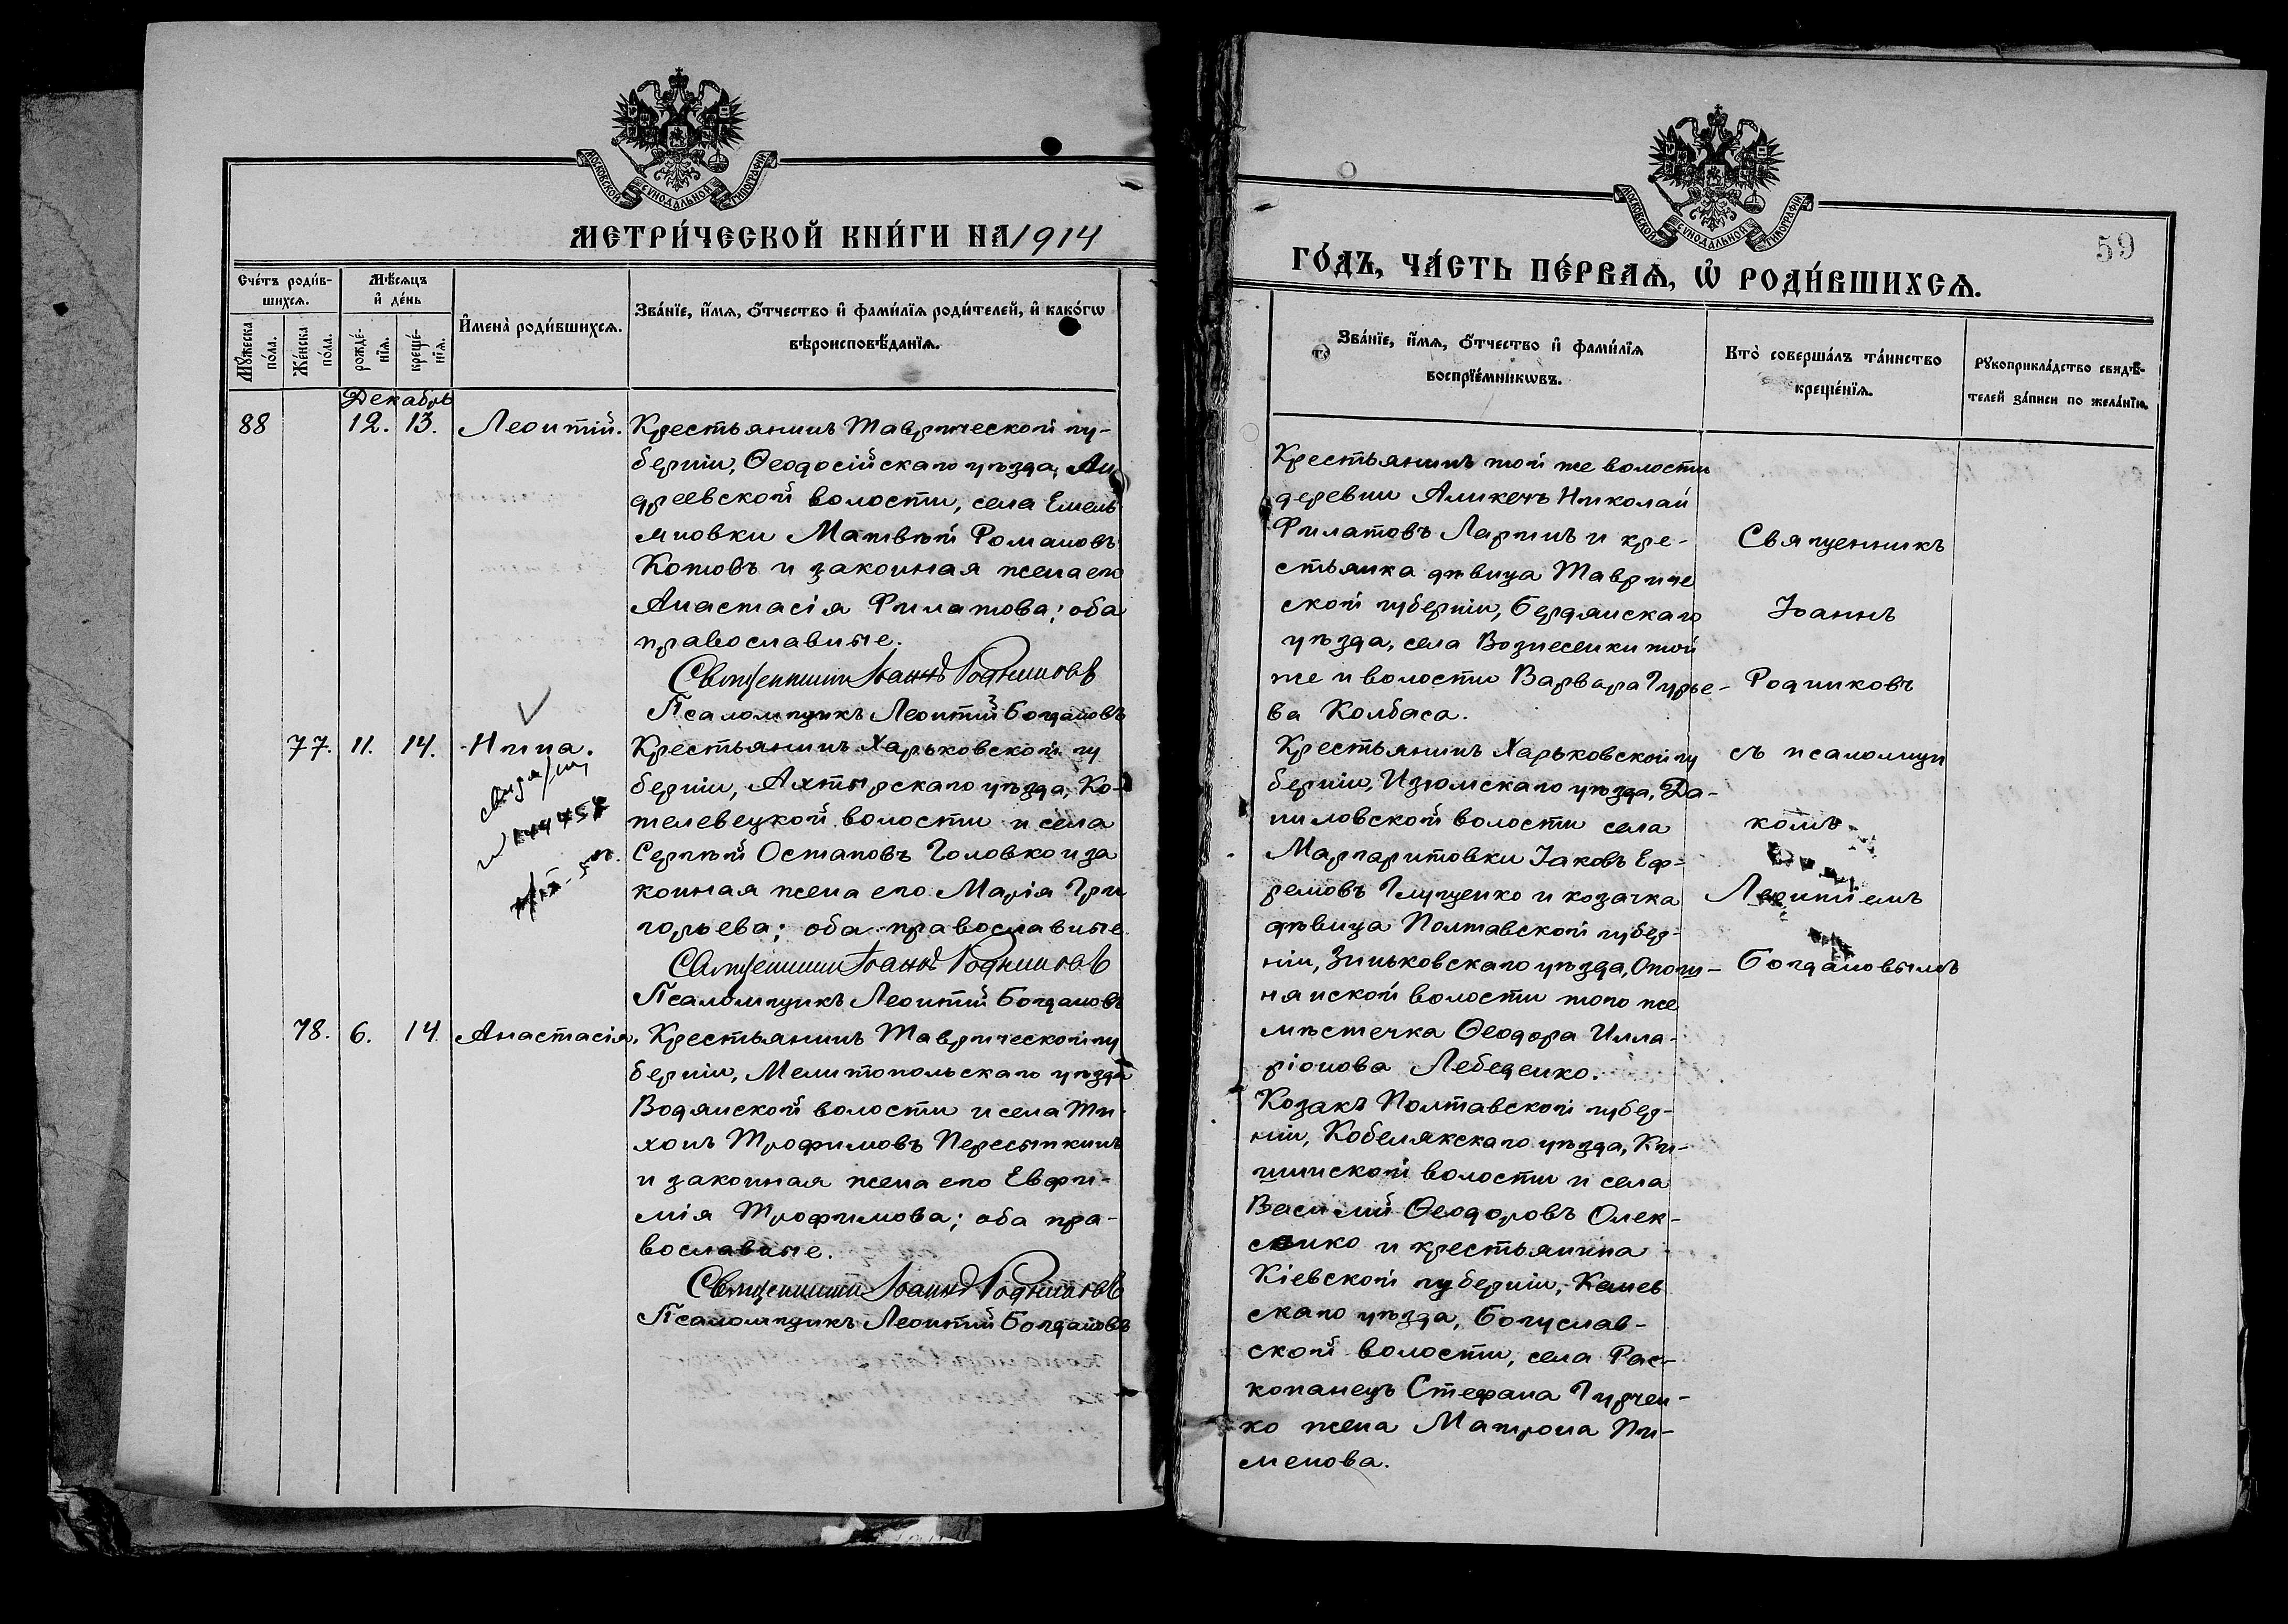 МОСКОВСКОЙ СѴНОДАЛЬНОЙ ТИПОГРАФІИ
МЕТРИ́ЧЕСКОЙ КНИ́ГИ НА 1914
Сче́тъ роди́в-
шихсѧ.
Мꙋ́жеска по́ла.
Же́нска по́ла.
Мѣ́сѧцъ
и҆ де́нь
рожде́-
нїѧ.
креще́-
нїѧ.
И҆мена̀ роди́вшихсѧ.
Зва́нїе, и҆́мѧ, ѻ҆́тчество и҆ фами́лїѧ роди́телей, и҆ како́гѡ
вѣроисповѣ́данїѧ.
Декабрь
88 12. 13. Леонтій. Крестьянинъ Таврической гу-
берніи, Ѳеодосійскаго уѣзда, Ан
дреевской волости, села Емель
яновки Матвѣй Романовъ
Котовъ и законная жена его
Анастасія Филатова; оба
православные.
Священникъ Іоаннъ Родниковъ
Псаломщикъ Леонтій Богдановъ
77. 11. 14. Нина. Крестьянинъ Харьковской гу
берніи, Ахтырскаго уѣзда, Ко-
телевецкой волости и села
Сергѣй Остаповъ Головко и за
конная жена его Марія Гри
горьева; оба православные
Священникъ Іоаннъ Родниковъ
Псаломщикъ Леонтій Богдановъ
78. 6. 14 Анастасія. Крестьянинъ Таврической гу
берніи, Мелитопольскаго уѣзда
Водянской волости и села Ти-
хонъ Трофимовъ Пересыпкинъ
и законная жена его Евфи-
мія Трофимова; оба пра-
вославные.
Священникъ Іоаннъ Родниковъ
Псаломщикъ Леонтій Богдановъ
МОСКОВСКОЙ СѴНОДАЛЬНОЙ ТИПОГРАФІИ
59
ГО́ДЪ, ЧА́СТЬ ПЕ́РВАѦ, Ѡ҆ РОДИ́ВШИХСѦ.
Зва́нїе, и҆́мѧ, ѻ҆́тчество и҆ фами́лїѧ
воспрїе́мникѡвъ.
Кто̀ соверша́лъ та́инство
креще́нїѧ.
Рꙋкоприкла́дство свидѣ́-
телей за́писи по жела́нїю.
Крестьянинъ той же волости
деревни Аликечъ Николай
Филатовъ Ларинъ и кре-
стьянка дѣвица Тавриче
ской губерніи, Бердянскаго
уѣзда, села Вознесенки той
же и волости Варвара Гурье-
ва Колбаса.
Крестьянинъ Харьковской гу
берніи, Изюмскаго уѣзда, Да-
ниловской волости села
Маргаритовки Іаковъ Еф-
ремовъ Глущенко и козачка
дѣвица Полтавской губер-
ніи, Зиньковскаго уѣзда, Опош-
нянской волости того же
мѣстечка Ѳеодора Илла-
ріонова Лебеденко.
Козакъ Полтавской губер-
ніи, Кобелякскаго уѣзда, Ки-
шинской волости и села
Василій Ѳеодоровъ Олек-
сенко и крестьянина
Кіевской губерніи, Канев
скаго уѣзда, Богуслав-
ской волости, села Рас-
копанецъ Стефана Гурчен-
ко жена Матрона Пи-
менова.
Священникъ
Іоаннъ
Родниковъ
съ псаломщи
комъ
Леонтіемъ
Богдановымъ